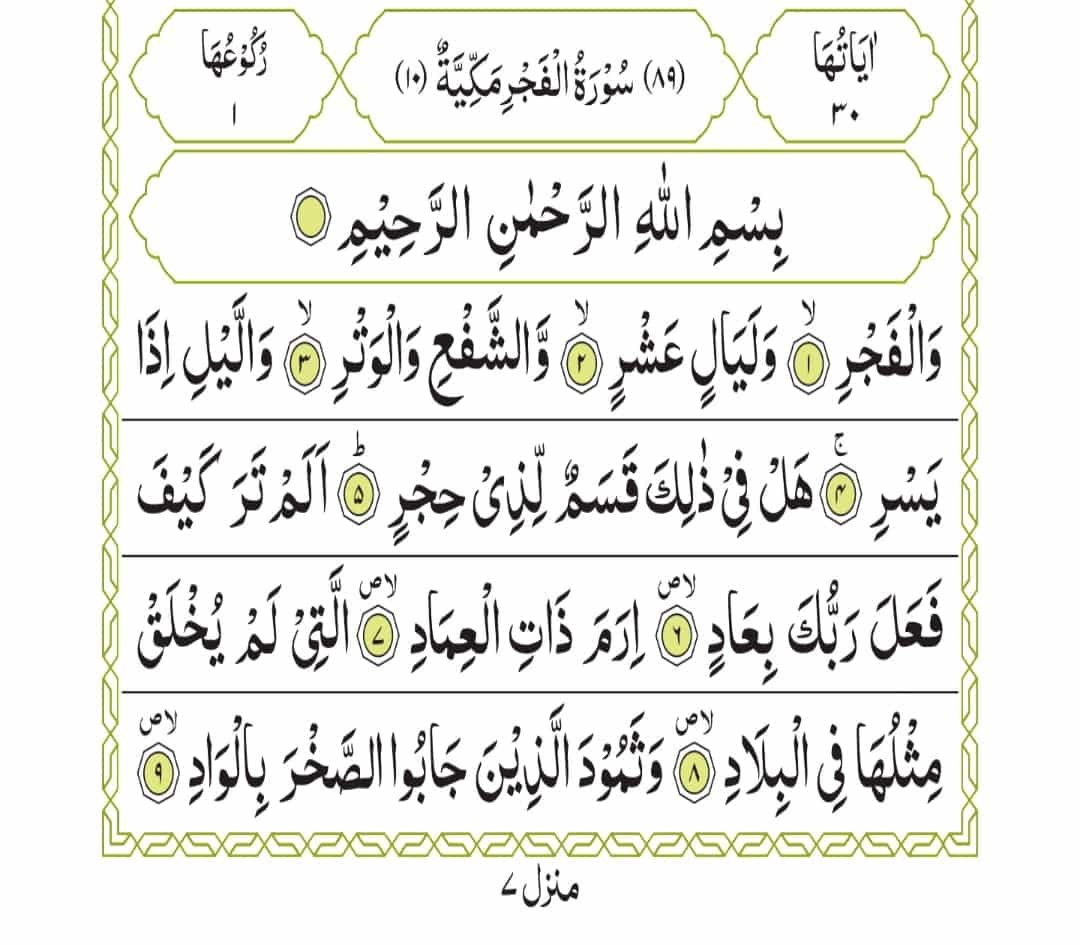 اٰيَاتُهَا ٣٠ (٨٩) سُوْرَةُ الْفَجْرِ مَكِّيَّةٌ (١٠) رُكُوْعُهَا ١
بِسْمِ اللّٰهِ الرَّحْمٰنِ الرَّحِيْمِ
وَالْفَجْرِ ۙ‏﴿١﴾ وَلَيَالٍ عَشْرٍ ۙ‏﴿٢﴾ وَّالشَّفْعِ وَالْوَتْرِ ۙ‏﴿٣﴾ وَالَّيْلِ اِذَا
يَسْرِ ۚ‏﴿۴﴾ هَلْ فِيْ ذٰلِكَ قَسَمٌ لِّذِيْ حِجْرٍ ؕ‏﴿۵﴾ اَلَمْ تَرَ كَيْفَ
فَعَلَ رَبُّكَ بِعَادٍ ۙلاص‏﴿۶﴾ اِرَمَ ذَاتِ الْعِمَادِ لاص‏﴿۷﴾ الَّتِيْ لَمْ يُخْلَقْ
مِثْلُهَا فِي الْبِلَادِ لاص‏﴿۸﴾ وَثَمُوْدَ الَّذِيْنَ جَابُوا الصَّخْرَ بِالْوَادِ لاص‏﴿۹﴾
منزل ۷